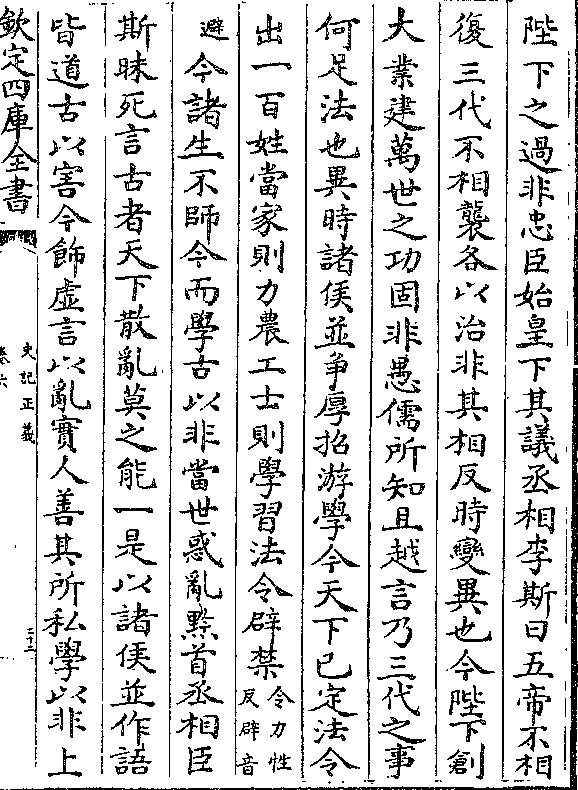 陛下之過非忠臣始皇下其議丞相李斯曰五帝不相
復三代不相襲各以治非其相反時變異也今陛下創
大業建萬世之功固非愚儒所知且越言乃三代之事
何足法也異時諸侯並爭厚招游學今天下已定法令
出一百姓當家則力農工士則學習法令辟禁令力性反辟音
避今諸生不師今而學古以非當世惑亂黔首丞相臣
斯昧死言古者天下散亂莫之能一是以諸侯並作語
皆道古以害今飾虛言以亂實人善其所私學以非上
欽定四庫全書
史記正義
卷六
三十三